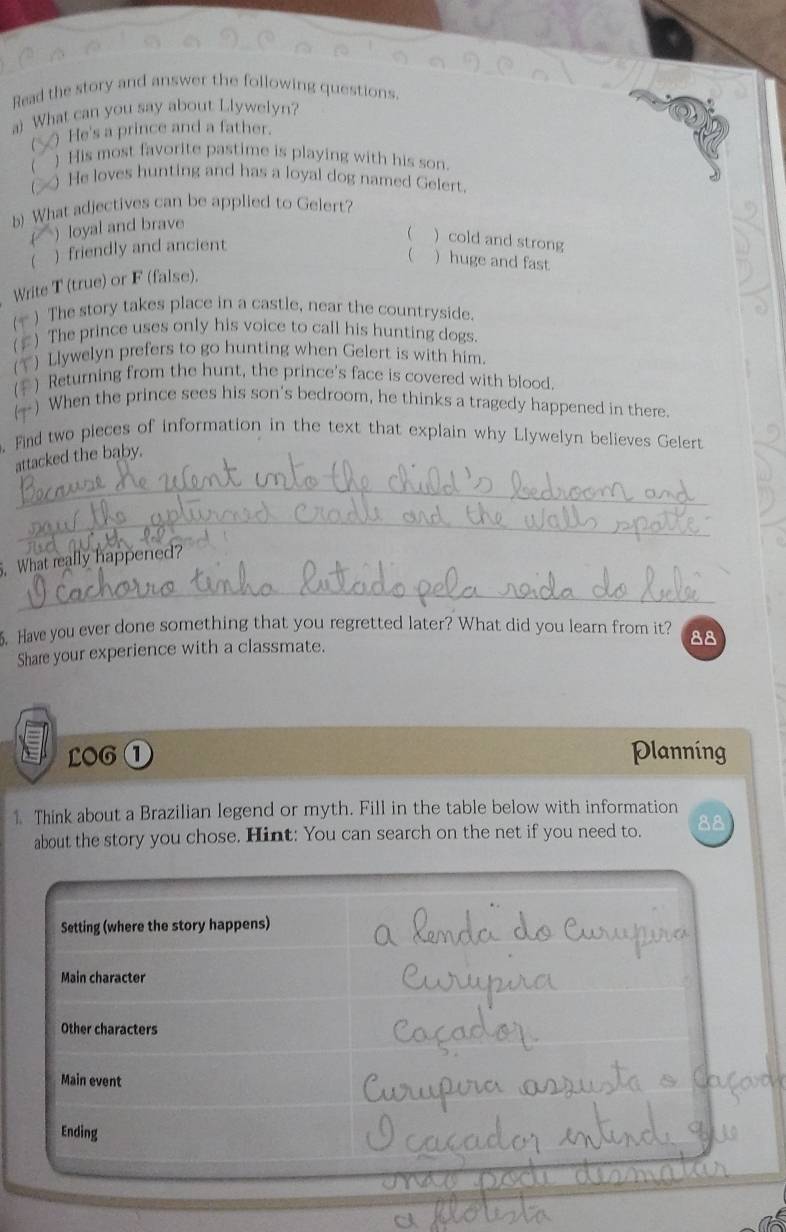 Read the story and answer the following questions.
a) What can you say about Llywelyn?
(X) He's a prince and a father.
( ) His most favorite pastime is playing with his son.
(X) He loves hunting and has a loyal dog named Gelert.
b) What adjectives can be applied to Gelert?
(X) loyal and brave
( ) cold and strong
( ) friendly and ancient
( ) huge and fast
Write T (true) or F (false).
(T) The story takes place in a castle, near the countryside.
(F) The prince uses only his voice to call his hunting dogs.
(T) Llywelyn prefers to go hunting when Gelert is with him.
(F) Returning from the hunt, the prince's face is covered with blood.
(T) When the prince sees his son's bedroom, he thinks a tragedy happened in there.
. Find two pieces of information in the text that explain why Llywelyn believes Gelert
attacked the baby.
Because he went into the child's bedroom and
saw the upturned cradle and the walls spatte
red with blood!
5. What really happened?
O cachorro tinha lutado pela vida do bebe
6. Have you ever done something that you regretted later? What did you learn from it?
88
Share your experience with a classmate.
LOG 1
Planning
1. Think about a Brazilian legend or myth. Fill in the table below with information
about the story you chose. Hint: You can search on the net if you need to.
88
Setting (where the story happens) a lenda do Curupira
Main character Curupira
Other characters Caçador
Main event Curupira assusta o Caçad
Ending O caçador entende que
não pode desmatar
a floresta